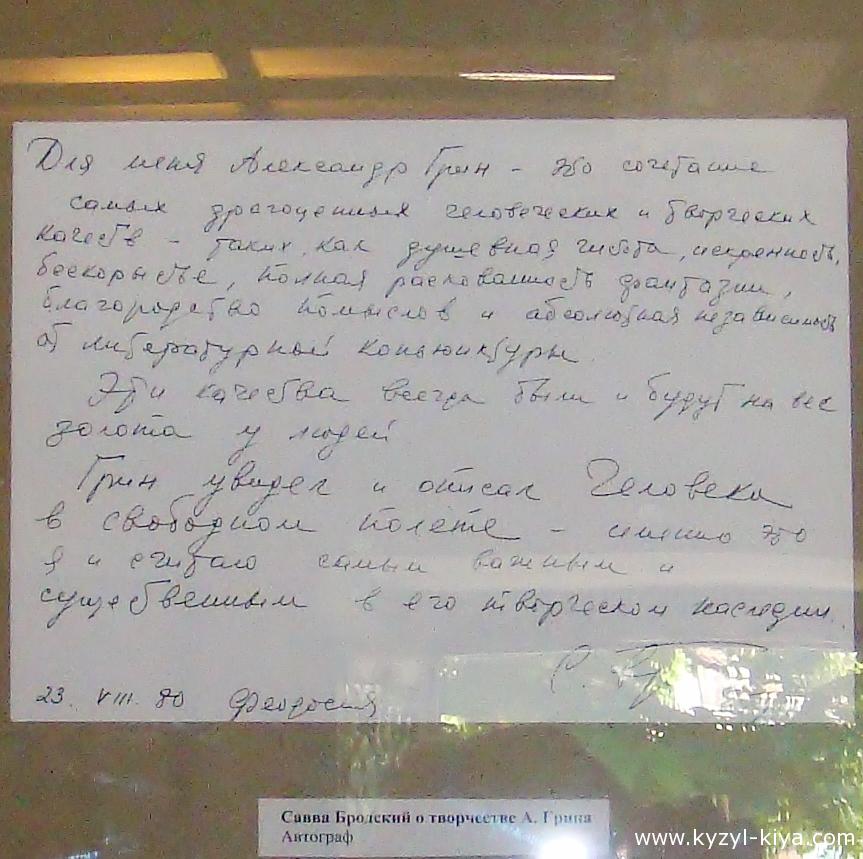 Для меня Александр Грин – это сочетание
самых драгоценных человеческих и творческих
качеств – таких, как душевная чистота, искренность,
бескорыстье, полная раскованность фантазии,
благородство помыслов и абсолютная независимость
от литературной коньюнктуры.
Эти качества всегда были и будут на вес
золота у людей
Грин увидел и описал Человека
в свободном полете – именно это
я и считаю самым важным и
существенным в его творческом наследии.
23. VIII. 80 Феодосия
Савва Бродский о творчестве А. Грина
Автограф
www.kyzyl-kiya.com